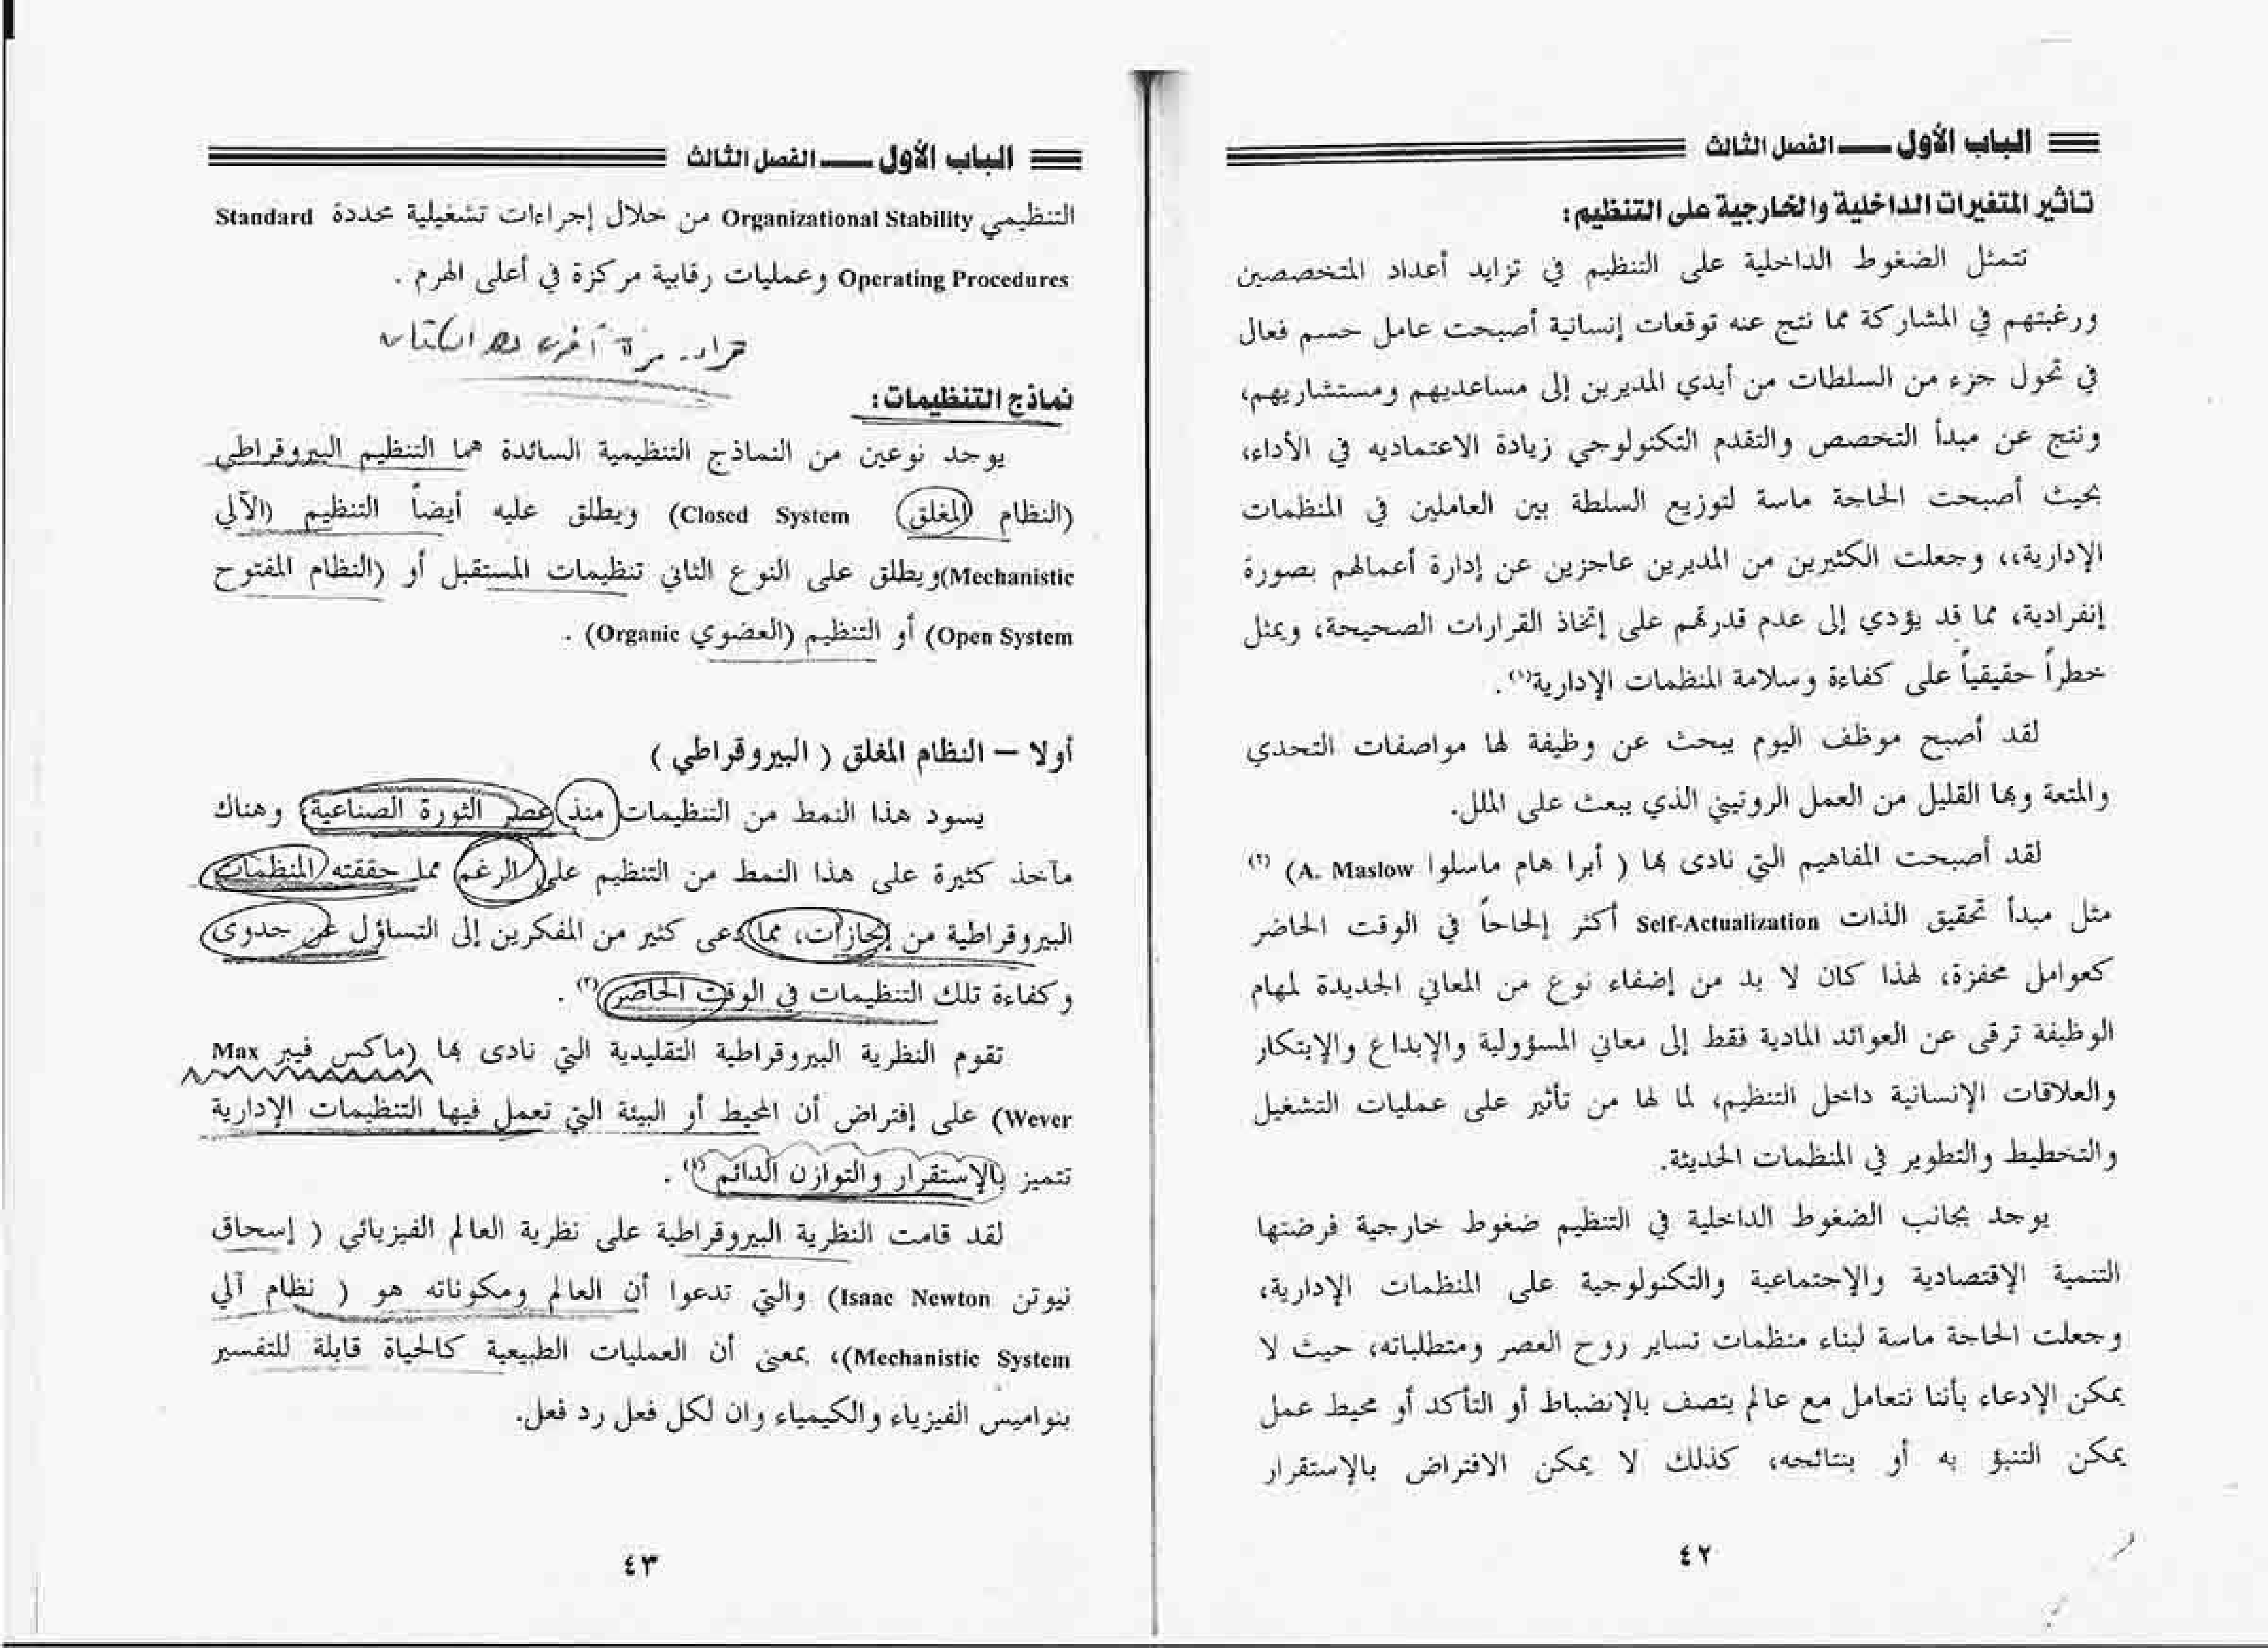 الباب الأول — الفصل الثالث
تأثير المتغيرات الداخلية والخارجية على التنظيم:
تتمثل الضغوط الداخلية على التنظيم في تزايد أعداد المتخصصين
ورغبتهم في المشاركة مما نتج عنه توقعات إنسانية أصبحت عامل حسم فعال
في تحول جزء من السلطات من أيدي المديرين إلى مساعديهم ومستشاريهم،
ونتج عن مبدأ التخصص والتقدم التكنولوجي زيادة الاعتماديه في الأداء،
بحيث أصبحت الحاجة ماسة لتوزيع السلطة بين العاملين في المنظمات
الإدارية،، وجعلت الكثيرين من المديرين عاجزين عن إدارة أعمالهم بصورة
إنفرادية، مما قد يؤدي إلى عدم قدرتهم على إتخاذ القرارات الصحيحة، ويمثل
خطراً حقيقياً على كفاءة وسلامة المنظمات الإدارية(١).
لقد أصبح موظف اليوم يبحث عن وظيفة لها مواصفات التحدي
والمتعة وبها القليل من العمل الروتيني الذي يبعث على الملل.
لقد أصبحت المفاهيم التي نادى بها ( أبرا هام ماسلوا A. Maslow) (٢)
مثل مبدأ تحقيق الذات Self-Actualization أكثر إلحاحاً في الوقت الحاضر
كعوامل محفزة، لهذا كان لا بد من إضفاء نوع من المعاني الجديدة لمهام
الوظيفة ترقى عن العوائد المادية فقط إلى معاني المسؤولية والإبداع والإبتكار
والعلاقات الإنسانية داخل التنظيم، لما لها من تأثير على عمليات التشغيل
والتخطيط والتطوير في المنظمات الحديثة.
يوجد بجانب الضغوط الداخلية في التنظيم ضغوط خارجية فرضتها
التنمية الإقتصادية والإجتماعية والتكنولوجية على المنظمات الإدارية،
وجعلت الحاجة ماسة لبناء منظمات تساير روح العصر ومتطلباته، حيث لا
يمكن الإدعاء بأننا نتعامل مع عالم يتصف بالإنضباط أو التأكد أو محيط عمل
يمكن التنبؤ به أو بنتائجه، كذلك لا يمكن الافتراض بالإستقرار
٤٢
الباب الأول — الفصل الثالث
التنظيمي Organizational Stability من خلال إجراءات تشغيلية محددة Standard
Operating Procedures وعمليات رقابية مركزة في أعلى الهرم .
مرة أخرى
نماذج التنظيمات:
يوجد نوعين من النماذج التنظيمية السائدة هما التنظيم البيروقراطي
(النظام المغلق Closed System) ويطلق عليه أيضاً التنظيم (الآلي
Mechanistic)ويطلق على النوع الثاني تنظيمات المستقبل أو (النظام المفتوح
Open System) أو التنظيم (العضوي Organic) .
أولا – النظام المغلق ( البيروقراطي )
يسود هذا النمط من التنظيمات منذ عصر الثورة الصناعية، وهناك
مآخذ كثيرة على هذا النمط من التنظيم على الرغم مما حققته المنظمات
البيروقراطية من إنجازات، مما دعى كثير من المفكرين إلى التساؤل عن جدوى
وكفاءة تلك التنظيمات في الوقت الحاضر(٣) .
تقوم النظرية البيروقراطية التقليدية التي نادى بها (ماكس فيبر Max
Wever) على إفتراض أن المحيط أو البيئة التي تعمل فيها التنظيمات الإدارية
تتميز بالإستقرار والتوازن الدائم(٤) .
لقد قامت النظرية البيروقراطية على نظرية العالم الفيزيائي ( إسحاق
نيوتن Isaac Newton) والتي تدعوا أن العالم ومكوناته هو ( نظام آلي
Mechanistic System)، بمعنى أن العمليات الطبيعية كالحياة قابلة للتفسير
بنواميس الفيزياء والكيمياء وان لكل فعل رد فعل.
٤٣